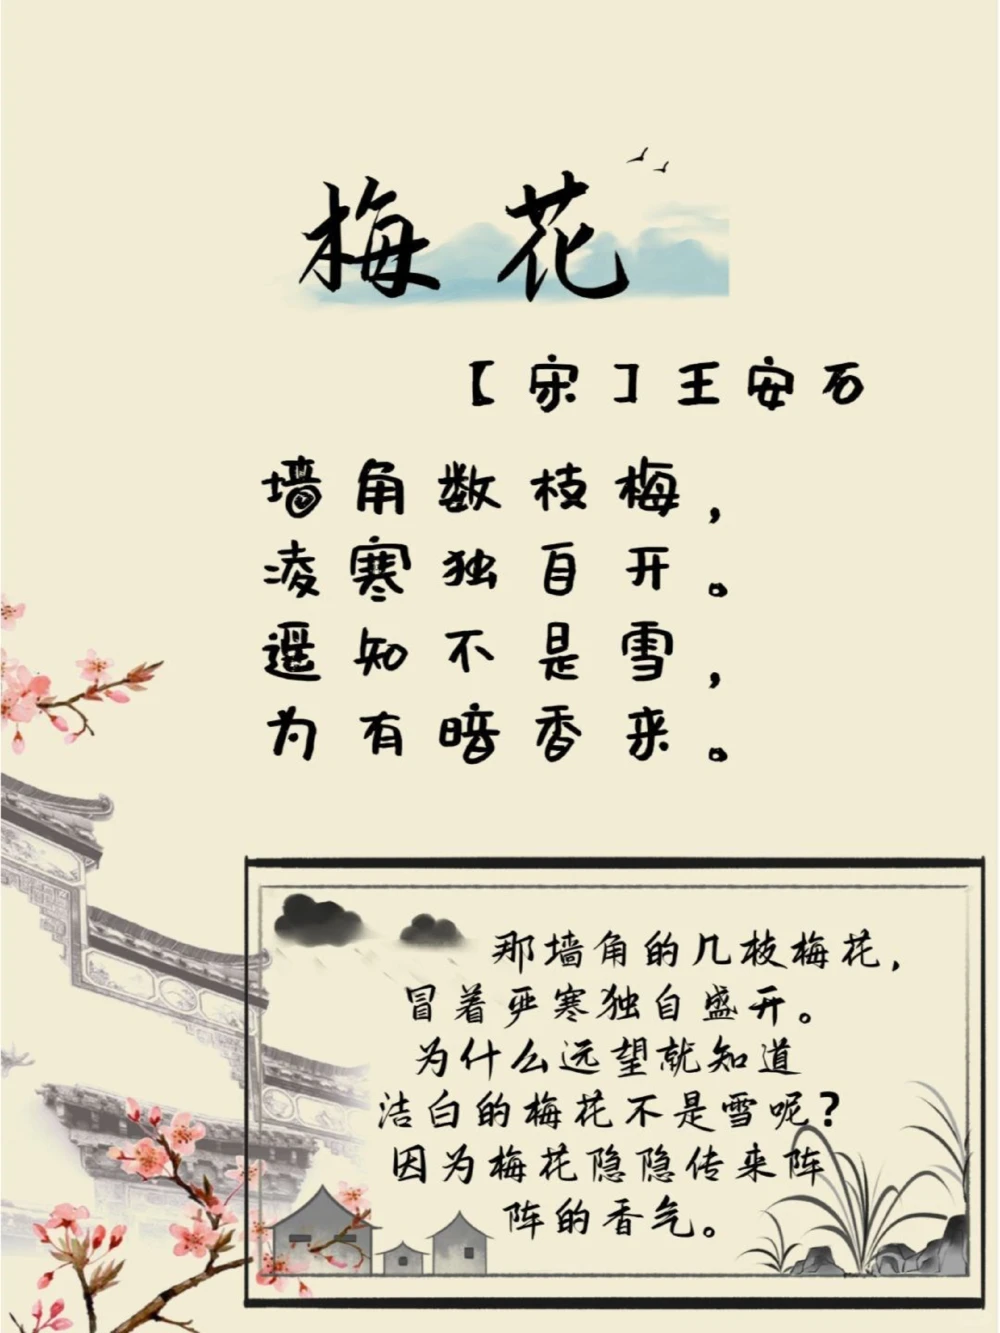 梅花
【宋】王安石
墙角数枝梅，
凌寒独自开。
遥知不是雪，
为有暗香来。
那墙角的几枝梅花，
冒着严寒独自盛开。
为什么远望就知道
洁白的梅花不是雪呢？
因为梅花隐隐传来阵
阵的香气。